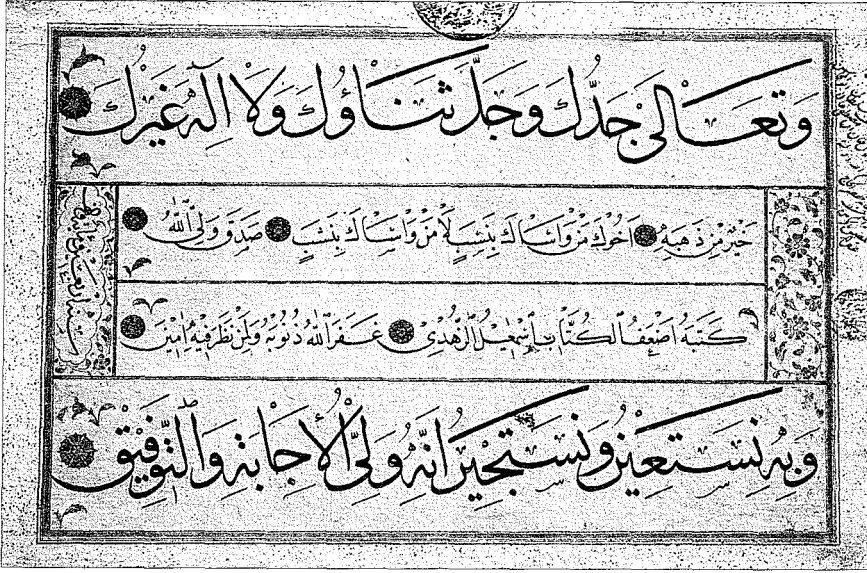 وَتَعَالىٰ جَدُّكَ وَجَلَّ ثَنَاؤُكَ وَلَا اِلٰهَ غَيْرُكَ
خَيْرٌ مِنْ ذَهَبِهِ اَخُوكَ مَنْ وَاسَاكَ بِنَشَبٍ لَا مَنْ وَاسَاكَ بِنَسَبٍ صَدَقَ وَلِىُّ اللّٰهِ
كَتَبَهُ اَضْعَفُ الكُتَّابِ اِسْمٰعِيلُ الزُّهْدِىْ غَفَرَ اللّٰهُ ذُنُوبَهُ وَلِمَنْ نَظَرَ فِيهِ اٰمِينَ
وَبِهِ نَسْتَعِيْنُ وَنَسْتَجِيْرُ اِنَّهُ وَلِىُّ الْاِجَابَةِ وَالتَّوْفِيْقِ